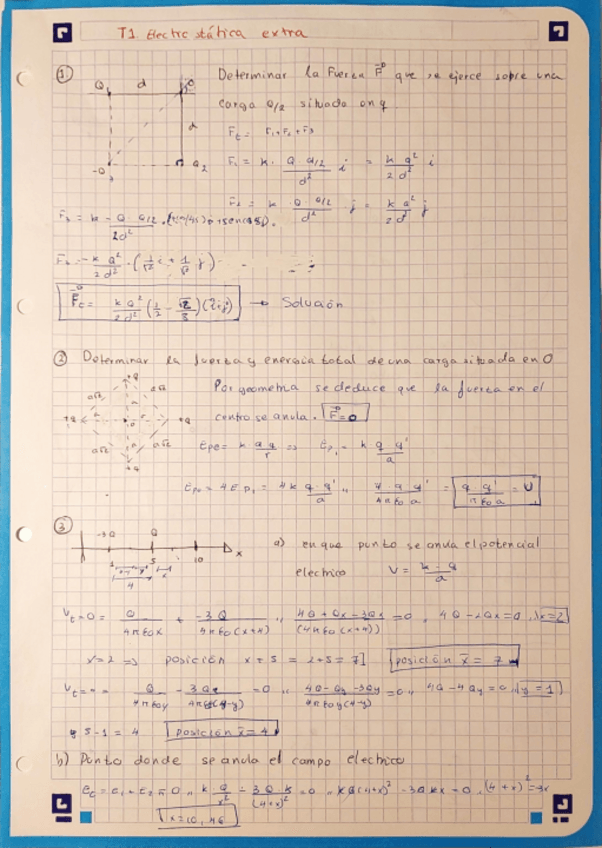 T1 Electrostática extra
① Determinar la Fuerza F que se ejerce sobre una
carga Q/2 situada en q.
Q d
d
-Q Q₂
F_t = F₁+F₂+F₃
F₁ = k · Q · Q/2 / d² i = k Q² / 2 d² i
k · Q · Q/2 / d² · j = k Q² / 2 d² j
k - Q · Q/2 / 2d²
- k Q² / 2 d² · (1/√2 i + 1/√2 j)
k Q² / 2 d² → Solución
② Determinar la fuerza y energia total de una carga situada en O
Por geometria se deduce que la fuerza en el
centro se anula. F=0
Epe = k · q q / r ⇒ Ep₁ = k q · q' / a
= 4 Ep₁ = 4 k q · q' / a = U
③
-3Q Q
1 5 10 x
4
a) en que punto se anula el potencial
electrico V = k · q / a
V_t=0= Q / 4πε₀x + -3Q / 4πε₀(x+4) 4Q + Qx - 3Qx / (4πε₀(x+4)) =0 4Q - 2Qx=0 x=2
x=2 ⇒ posición x + 5 = 2+5 = 7 posición x = 7
=0 4Q - Qy - 3Qy =0 4Q - 4Qy =0 y = 1
5 - 1 = 4 posición x = 4
b) Punto donde se anula el campo electrico
k Q / x² - 3Q k / (4+x)² =0
x=10,46